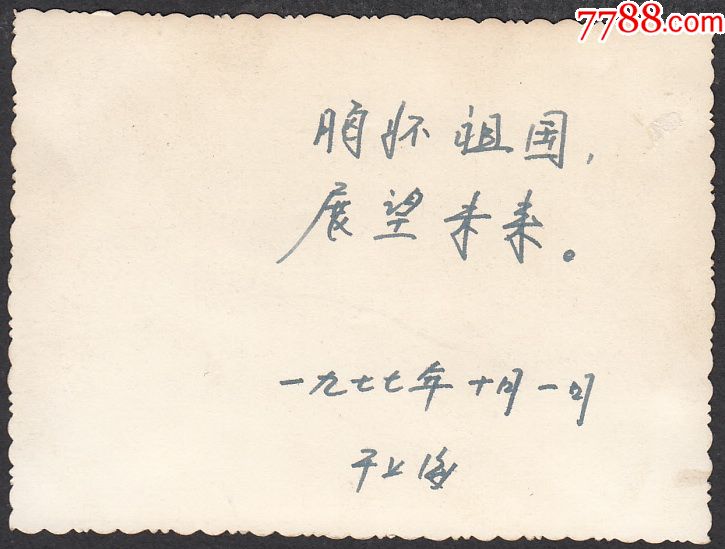 7788.com
胸怀祖国,
展望未来。
一九七七年十月一日
于上海